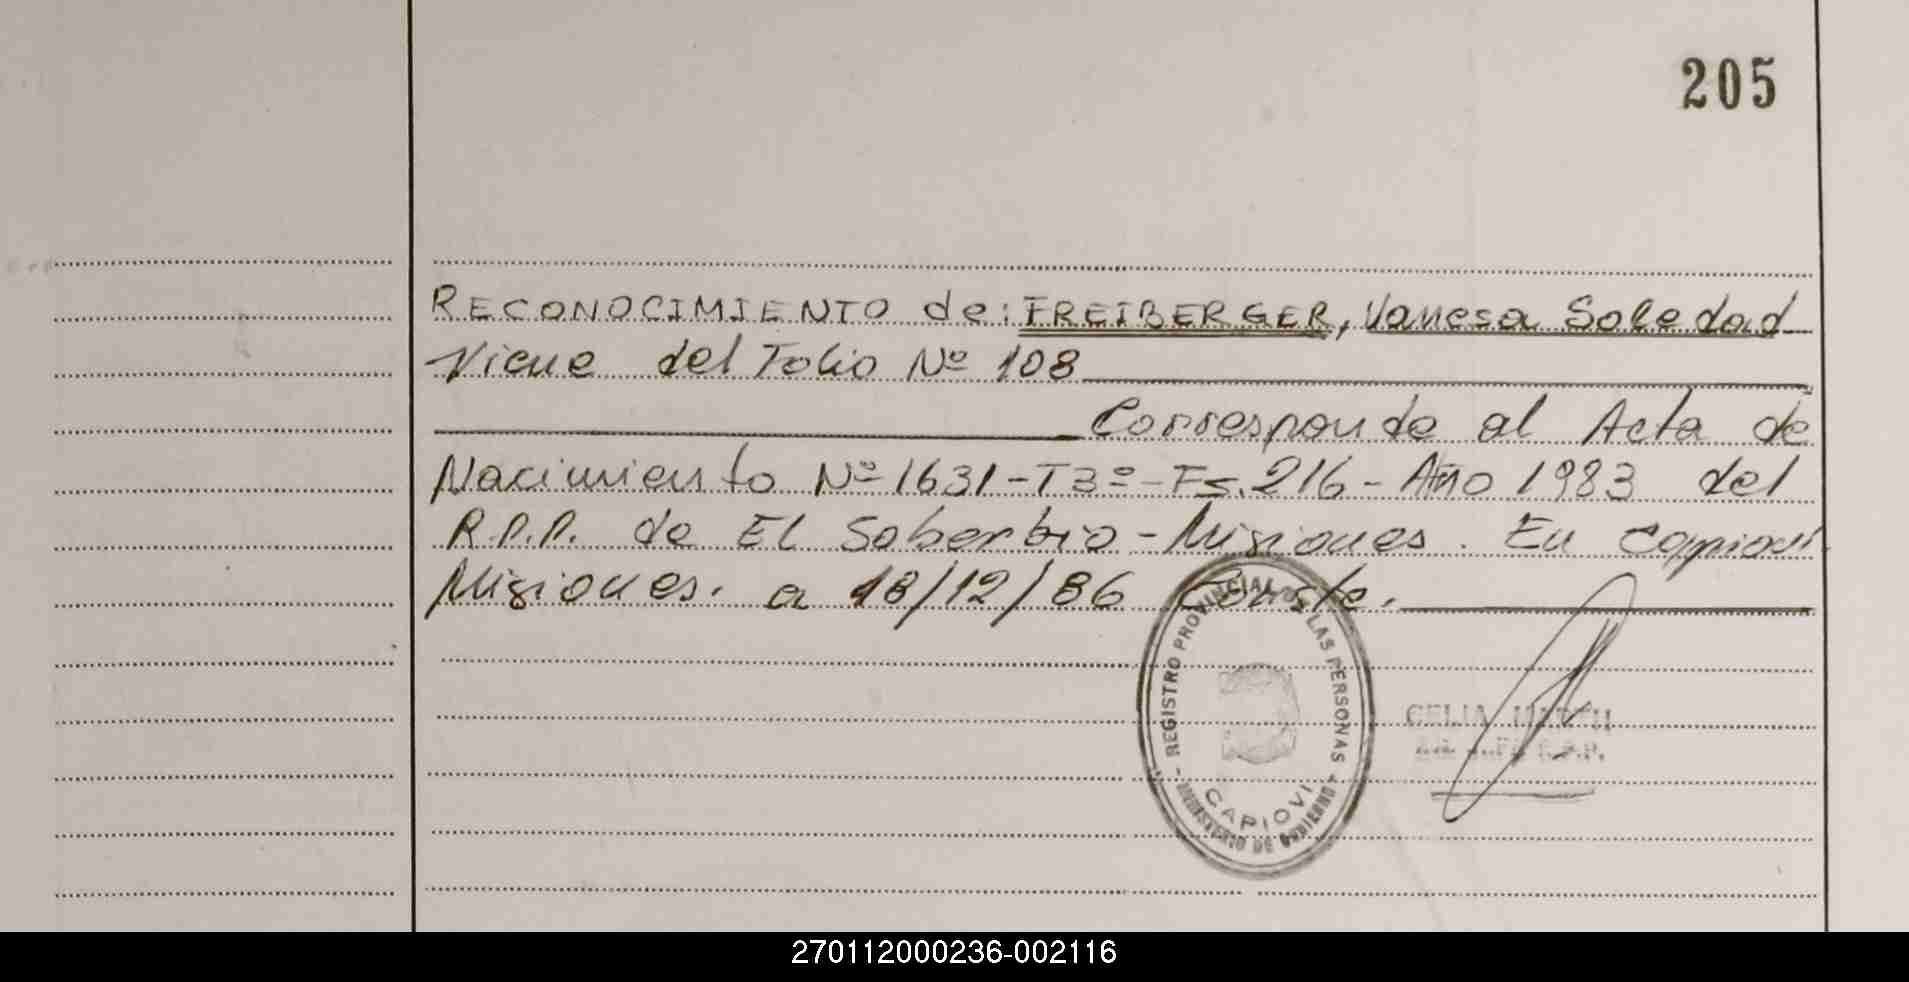 205
RECONOCIMIENTO de: FREIBERGER, Vanesa Soledad
Viene del Folio Nº 108
Corresponde al Acta de
Nacimiento Nº 1631-T3º-Fs. 216-Año 1983 del
R.P.P. de El Soberbio-Misiones. En Capioví
Misiones. a 18/12/86 Conste.
REGISTRO PROVINCIAL DE LAS PERSONAS
CAPIOVI
MINISTERIO DE GOBIERNO
CELIA
270112000236-002116